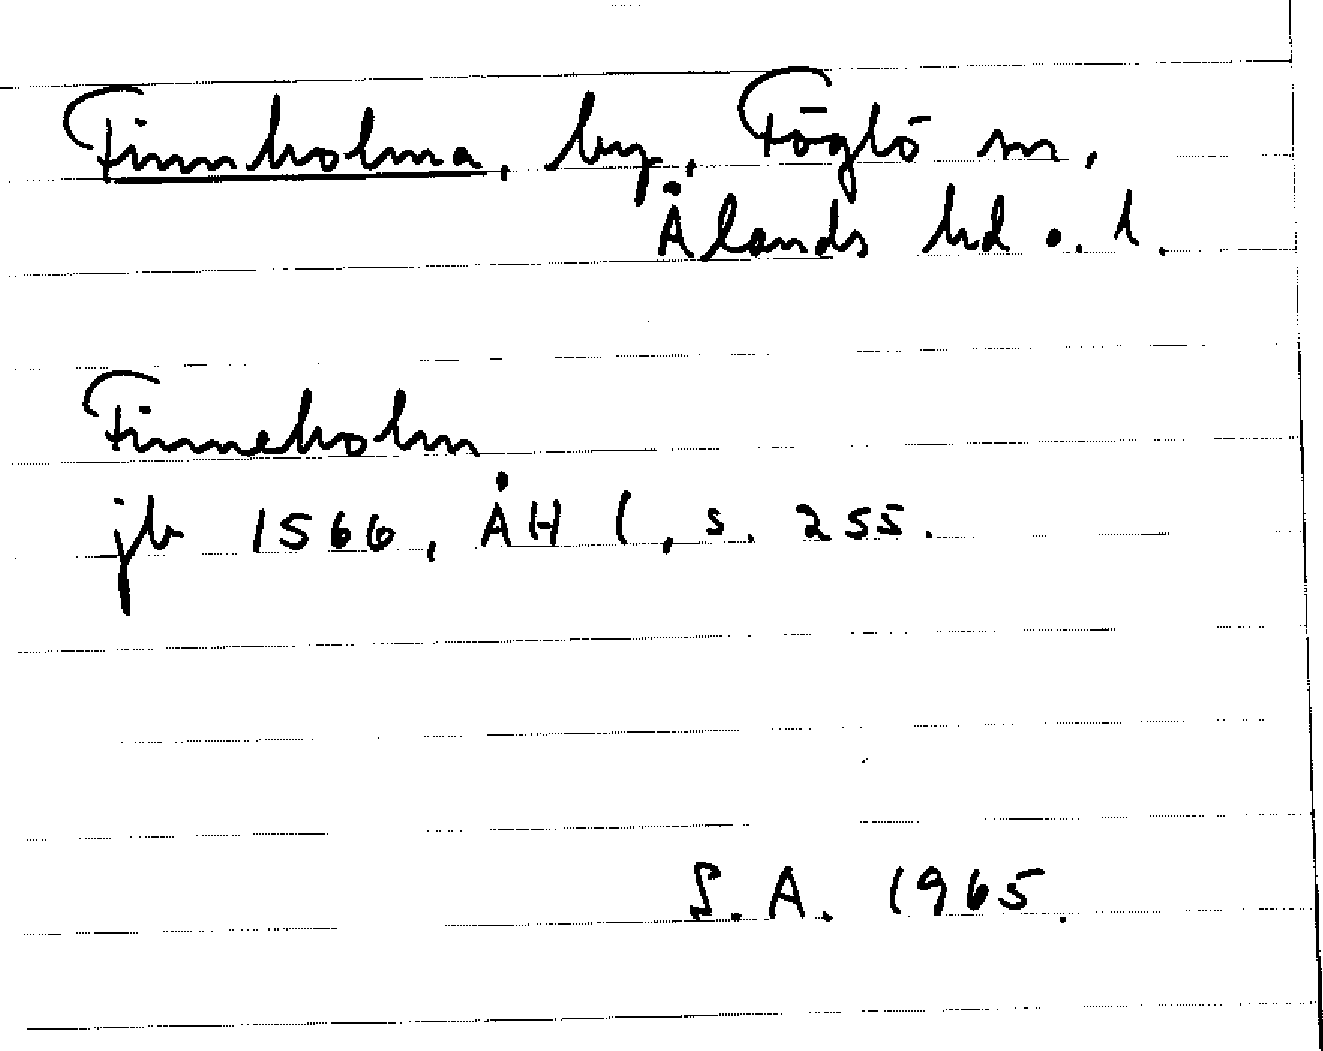 Finnholma, by, Föglö sn,
Ålands hd o. l.
Finneholm
jb 1566, ÅH 1, s. 255.
S. A. 1965.